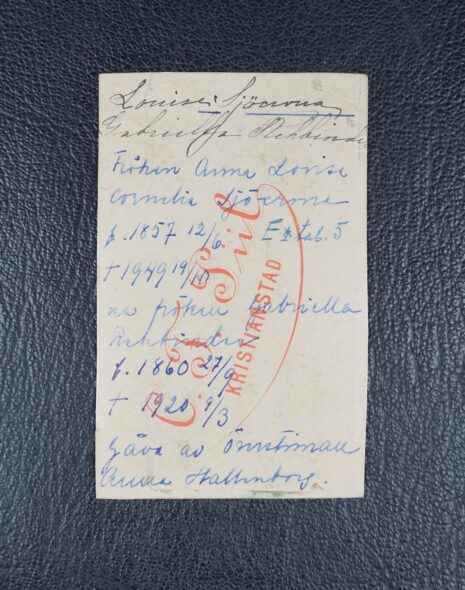 Louise Sjöcrona
Gabriella Rehbinder
Fröken Anna Lovise
Cornelia Sjöcrona
f. 1857 12/6 tab. 5
† 1949 19/10
fröken Gabriella
Rehbinder
f. 1860 27/9
† 1920 9/3
Gåva av
Anna Hallenborg.
KRISTIANSTAD